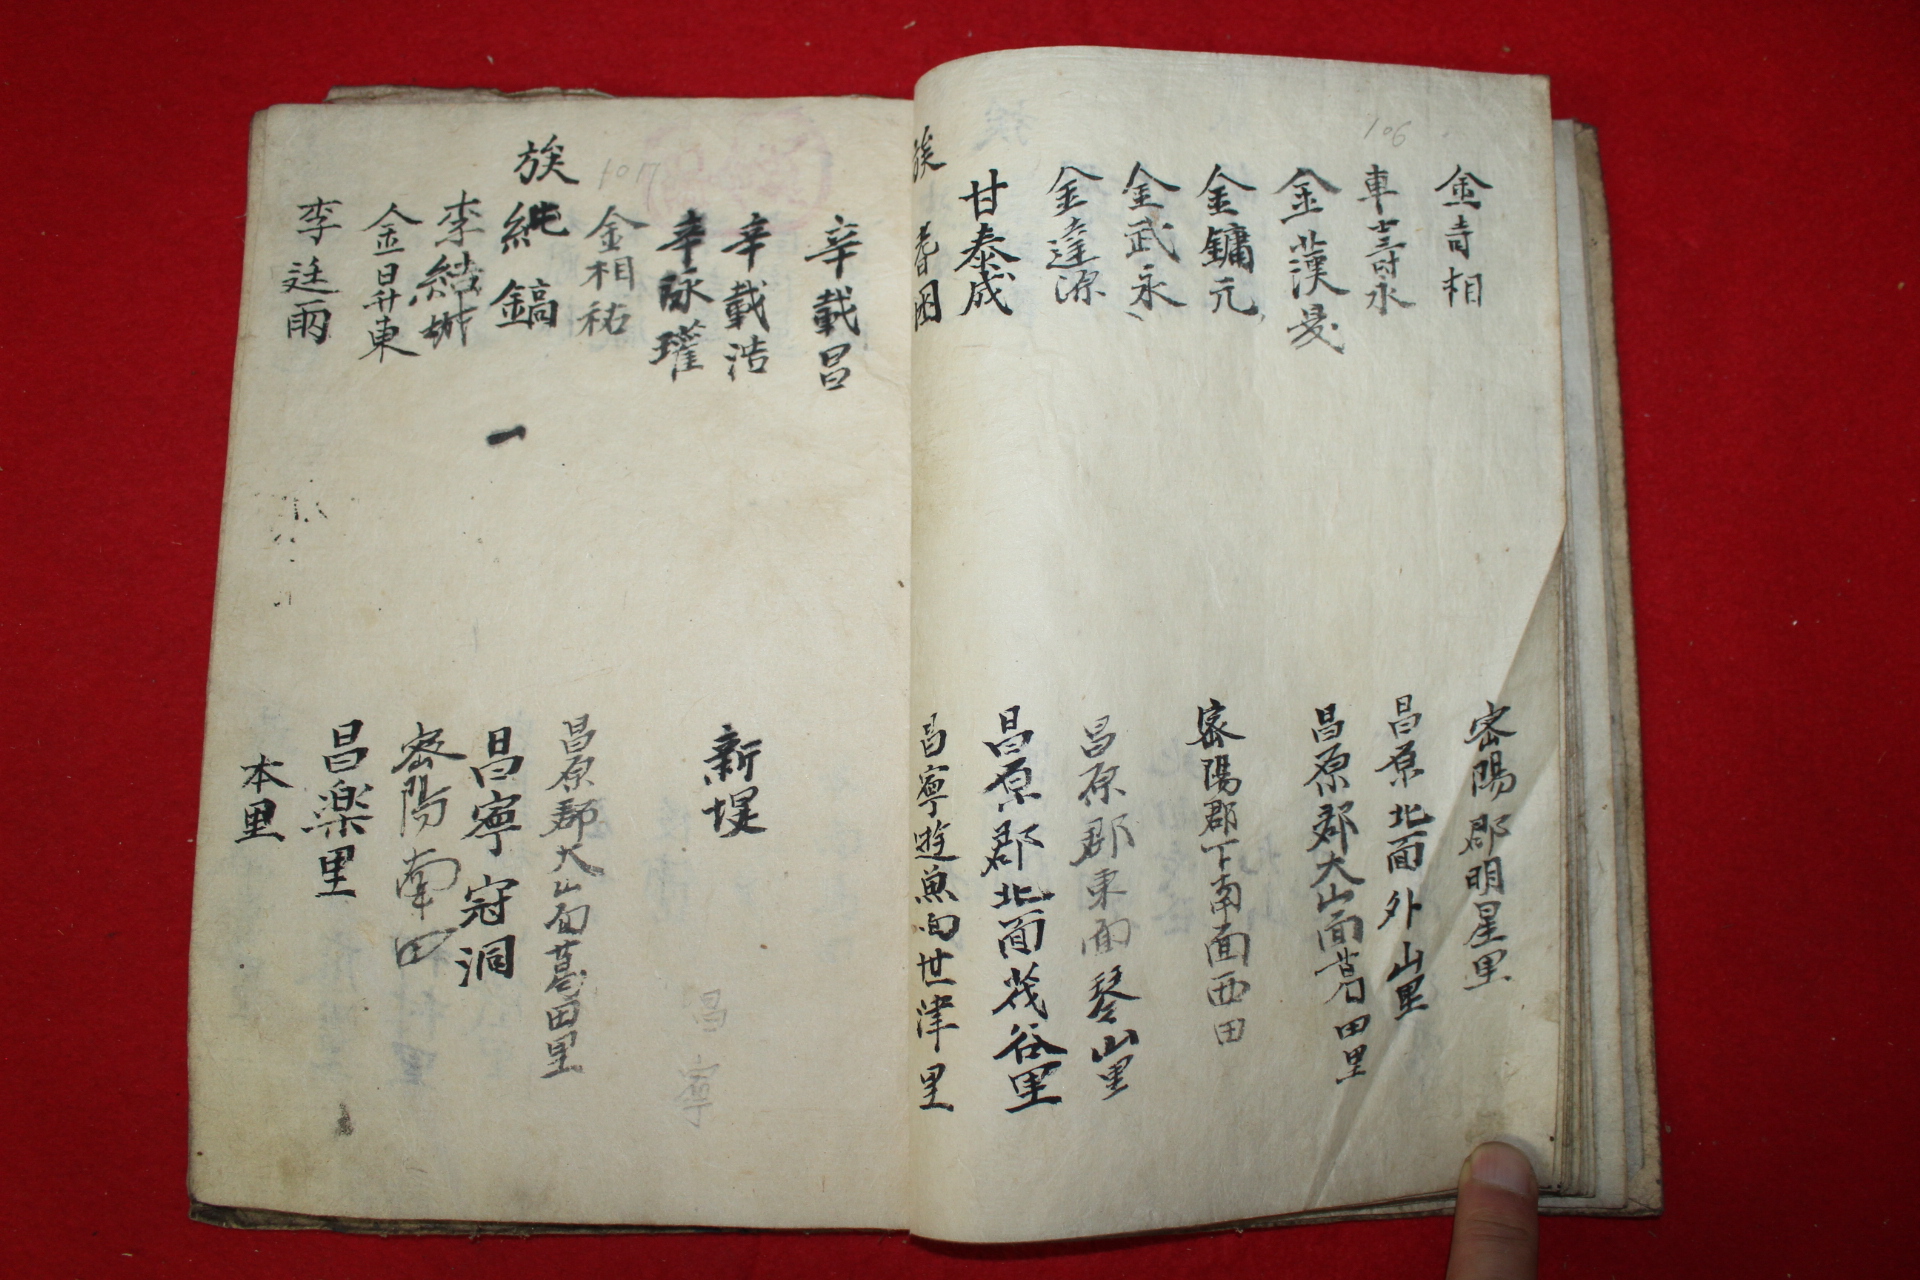 106
金奇相
密陽郡明星里
車壽永
昌原北面外山里
金漢旻
昌原郡大山面葛田里
金鏞元
密陽郡下南面西田
金武永
金達源
昌原郡東面琴山里
甘泰成
昌原郡北面茂谷里
族
昌寧遊魚面世津里
辛載昌
辛載浩
新堤
辛泳瓘
昌寧
107
金相祐
昌原郡大山面葛田里
族 純鎬
昌寧冠洞
李結城
密陽南田
金昇東
昌樂里
李廷雨
本里